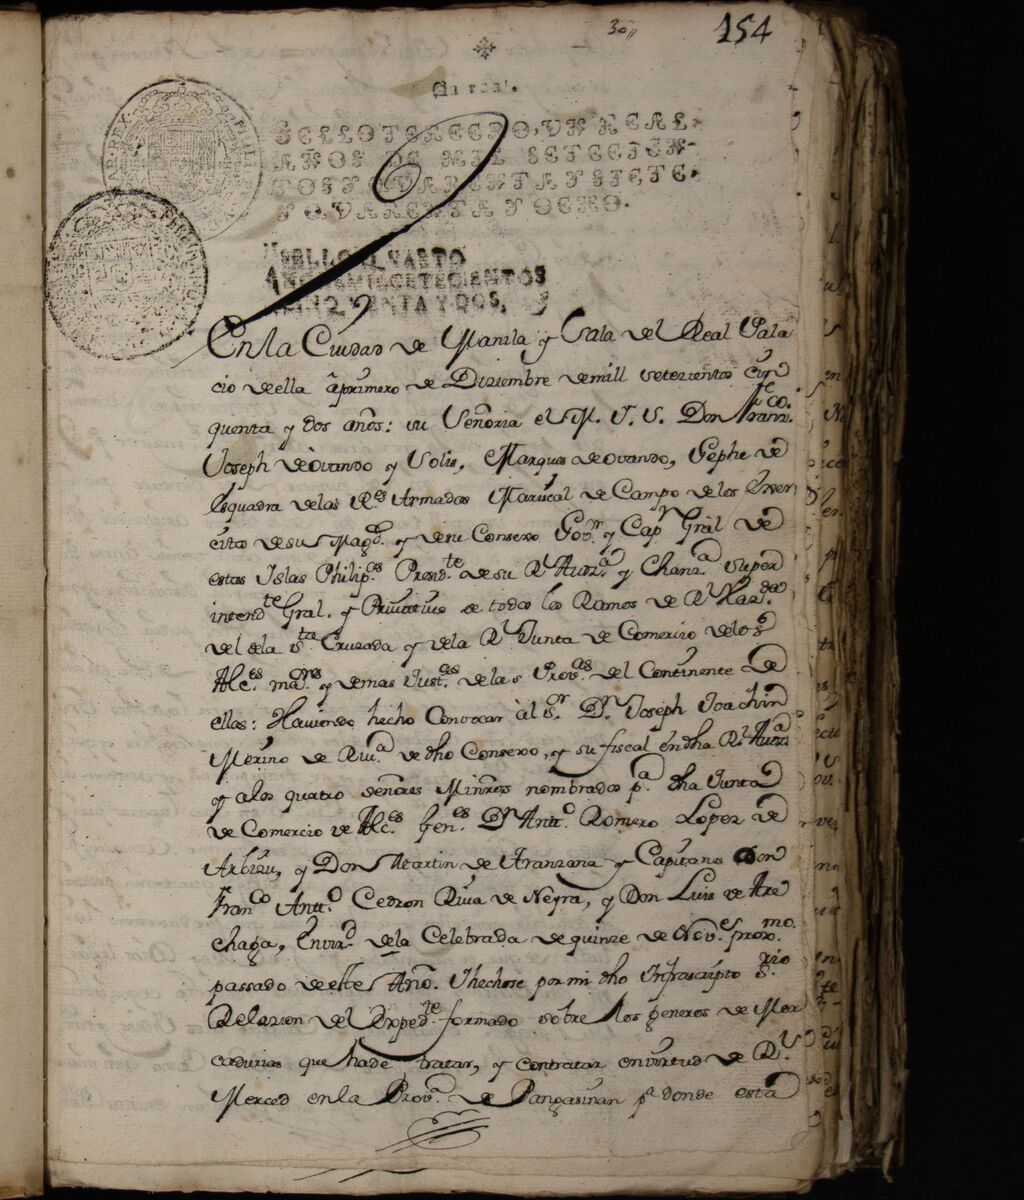 30,, 154
Un real.
SELLO TERCERO, UN REAL
AÑOS DE MIL SETECIEN-
TOS Y QVARENTA Y SIETE
Y QVARENTA Y OCHO.
SELLO QVARTO
AÑO DE MIL SETECIENTOS
CINQVENTA Y DOS,
En la Ciudad de Manila y Sala del Real Pala
cio de ella â primero de Diziembre de mill setezientos cin
quenta y dos años: su Señoria el M. I. S. Don Franco.
Joseph de Ovando y Solis, Marques de Ovando, Gephe de
Esquadra de las Rs. Armadas Mariscal de Campo de los Exer
citos de su Magd. y de su Consexo Govr. y Capn. Gral de
estas Islas Philips. Presidte. de su Rl. Audza. y Chanza. super
intendte Gral. y Privativo de todos los Ramos de Rl. Hazda.
del de la Sta Cruzada y de la Rl. Junta de Comercio de los
Alces. mares. y demas Justas. de las Provas. del Continente de
ellas: Haviendo hecho Convocar âl Sr. Dn. Joseph Joachin
Merino de Riva. de dho Consexo, y su fiscal en dha Rl. Audza.
y a los quatro señores Minros nombrados pa. dha Junta
de Comercio de Alces. Genes. Dn Antto. Romero Lopez de
Arbizu, y Don Martin de Aranzana y Capitanes Don
Franco Antto. Cedron Riva de Neyra, y Don Luis de Are
chaga, En vird. de la Celebrada de quinze de Nove. proxmo.
passado de este Año. I hechose por mi dho Infrascripto Srio.
Relazion del Expedte. formado sobre los generos de Mer
cadurias que ha de tratar, y contratar en virtud de Rl.
Merced en la Prova. de Pangasinan pa donde está